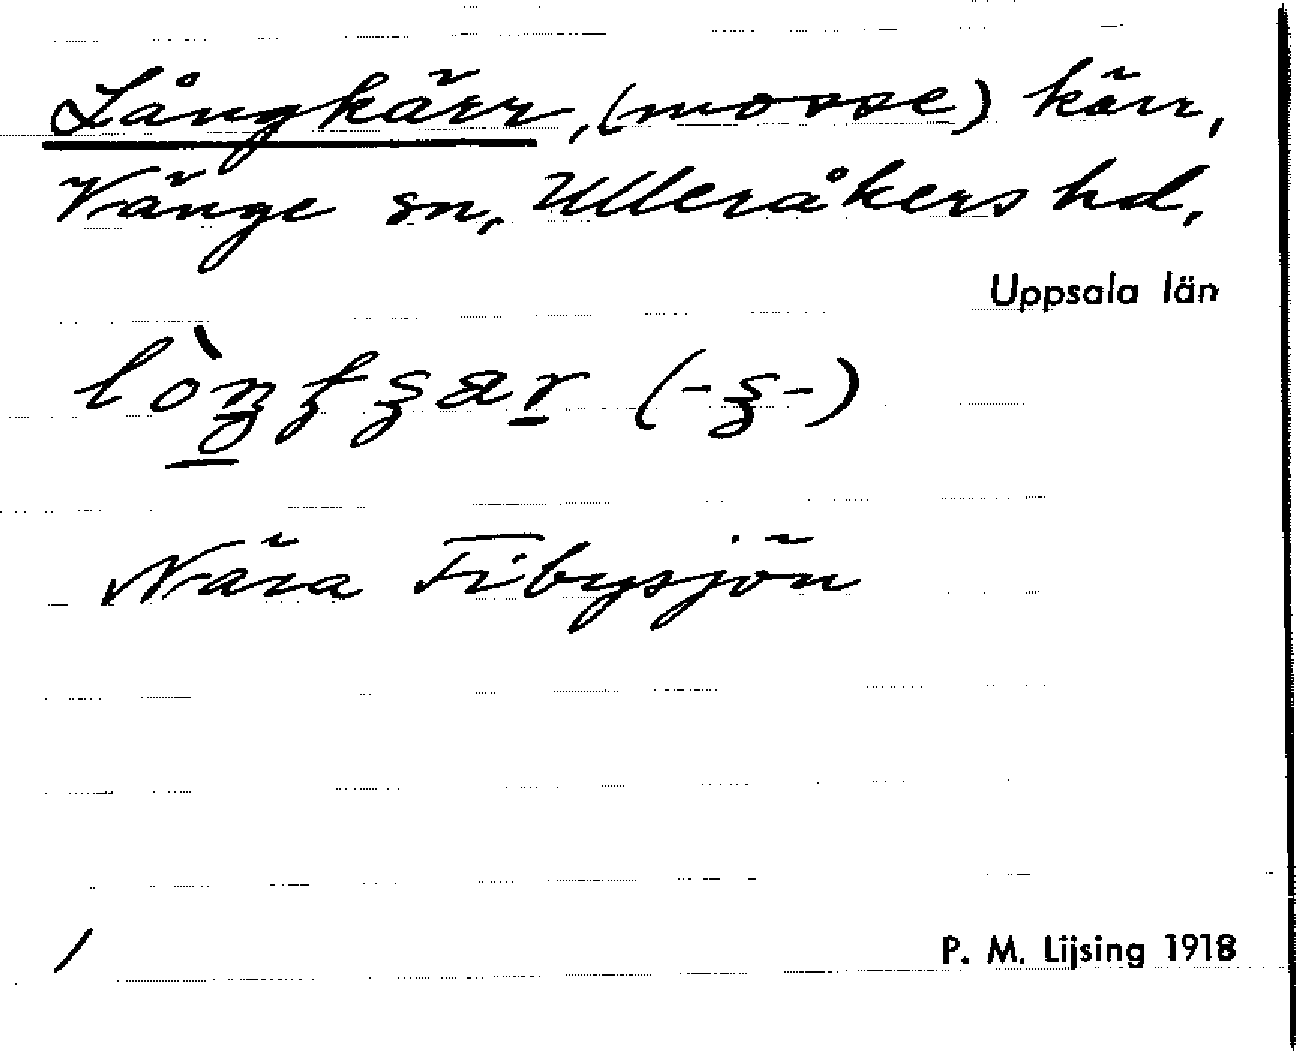 Långkärr, (mosse) kärr,
Vänge sn, Ulleråkers hd,
Uppsala län
Nära Fibysjön
P. M. Lijsing 1918